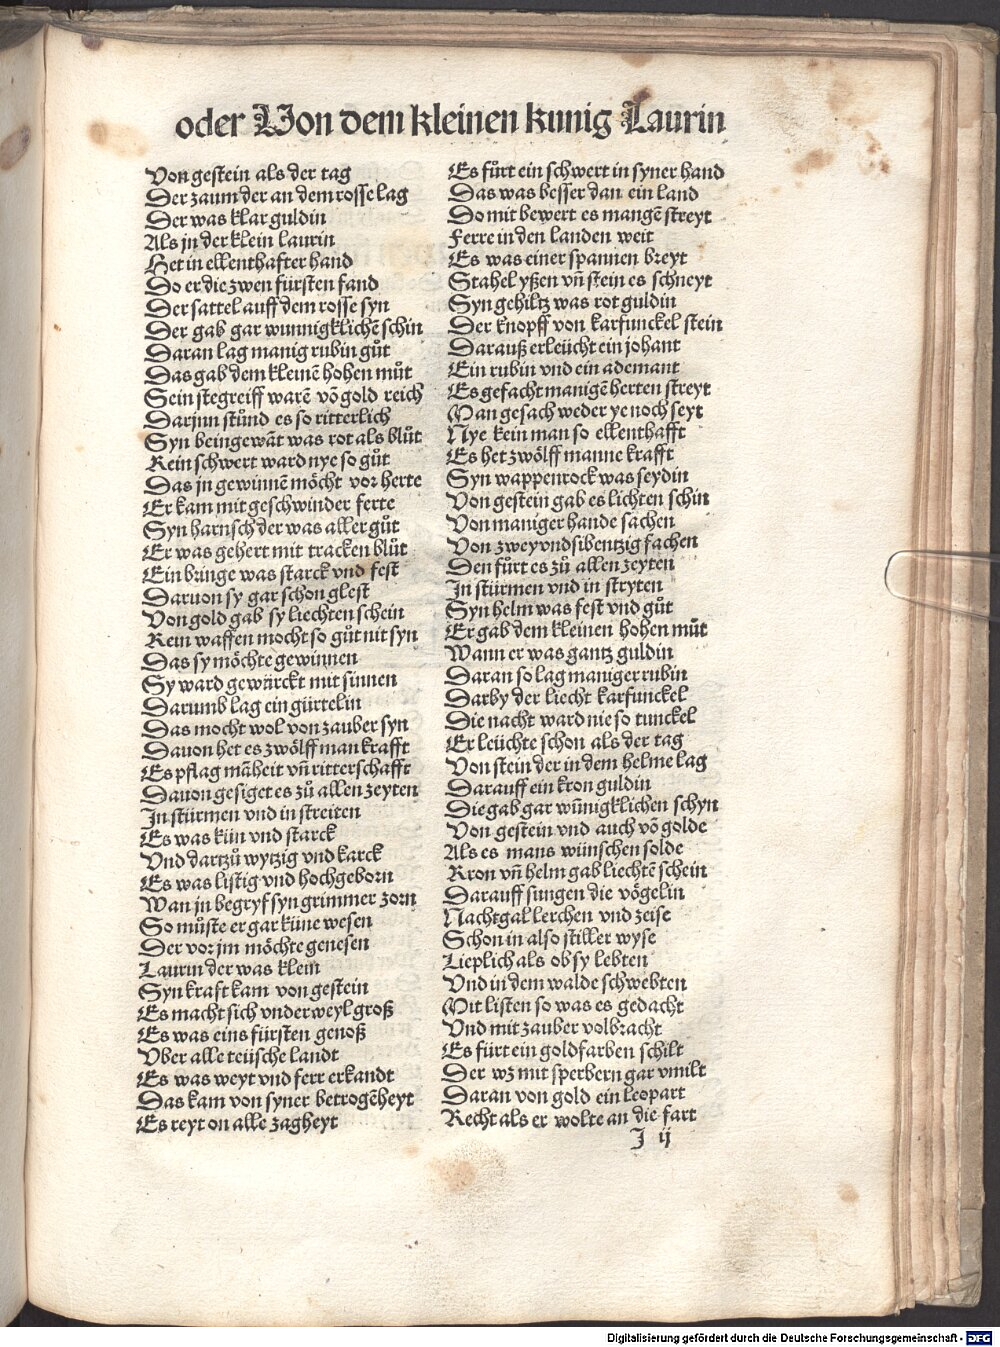 oder Von dem kleinen kunig Laurin
Von gestein als der tag
Der zaum der an dem rosse lag
Der was klar guldin
Als jn der klein laurin
Het in ellenthafter hand
Do er die zwen fürsten fand
Der sattel auff dem rosse syn
Der gab gar wunnigklichē schin
Daran lag manig rubin gůt
Das gab dem kleinē hohen můt
Sein stegreiff warē võ gold reich
Darjnn stůnd es so ritterlich
Syn beingewāt was rot als blůt
Kein schwert ward nye so gůt
Das jn gewinnē möcht vor herte
Er kam mit geschwinder ferte
Syn harnsch der was aller gůt
Er was gehert mit tracken blůt
Ein bringe was starck vnd fest
Daruon sy gar schon glest
Von gold gab sy liechten schein
Kein waffen mocht so gůt nit syn
Das sy möchte gewinnen
Sy ward gewürckt mit sinnen
Darumb lag ein gürtelin
Das mocht wol von zauber syn
Dauon het es zwölff man krafft
Es pflag māheit vñ ritterschafft
Dauon gesiget es zů allen zeyten
In stürmen vnd in streiten
Es was kün vnd starck
Vnd dartzů wytzig vnd karck
Es was listig vnd hochgeborn
Wan jn begryf syn grimmer zorn
So můste er gar küne wesen
Der vor jm möchte genesen
Laurin der was klein
Syn kraft kam von gestein
Es macht sich vnderweyl groß
Es was eins fürsten genoß
Vber alle teüsche landt
Es was weyt vnd ferr erkandt
Das kam von syner betrogēheyt
Es reyt on alle zagheyt
Es fůrt ein schwert in syner hand
Das was besser dan ein land
Do mit bewert es mangē streyt
Ferre in den landen weit
Es was einer spannen breyt
Stahel yßen vñ stein es schneyt
Syn gehiltz was rot guldin
Der knopff von karfunckel stein
Darauß erleücht ein johant
Ein rubin vnd ein ademant
Es gefacht manigē herten streyt
Man gesach weder ye noch seyt
Nye kein man so ellenthafft
Es het zwölff manne krafft
Syn wappenrock was seydin
Von gestein gab es lichten schin
Von maniger hande sachen
Von zwey vnd sibentzig fachen
Den fůrt es zů allen zeyten
In stürmen vnd in stryten
Syn helm was fest vnd gůt
Er gab dem kleinen hohen můt
Wann er was gantz guldin
Daran so lag maniger rubin
Darby der liecht karfunckel
Die nacht ward nie so tunckel
Er leüchte schon als der tag
Von stein der in dem helme lag
Darauff ein kron guldin
Die gab gar wūnigklichen schyn
Von gestein vnd auch võ golde
Als es mans wünschen solde
Kron vñ helm gab liechtē schein
Darauff sungen die vögelin
Nachtgal lerchen vnd zeise
Schon in also stiller wyse
Lieplich als ob sy lebten
Vnd in dem walde schwebten
Mit listen so was es gedacht
Vnd mit zauber volbracht
Es fürt ein goldfarben schilt
Der wz mit sperbern gar vmilt
Daran von gold ein leopart
Recht als er wolte an die fart
J ij
Digitalisierung gefördert durch die Deutsche Forschungsgemeinschaft - DFG